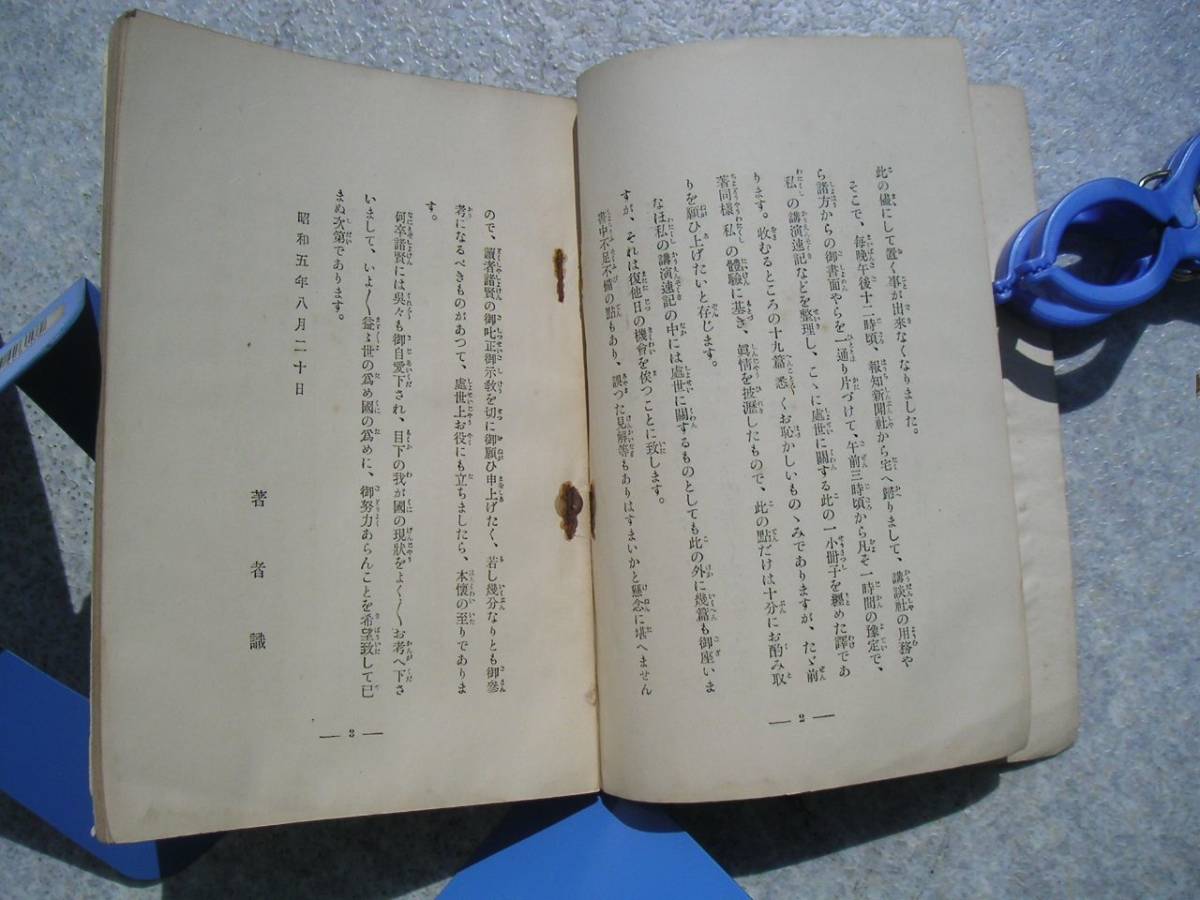 此の儘にして置く事が出來なくなりました。
そこで、毎晩午後十二時頃、報知新聞社から宅へ歸りまして、講談社の用務や
ら諸方からの御書面やらを一通り片づけて、午前三時頃から凡そ一時間の豫定で、
私の講演速記などを整理し、こゝに處世に關する此の一小册子を纒めた譯であ
ります。收むるところの十九篇悉くお恥かしいものゝみでありますが、たゞ前
著同樣私の體驗に基き、眞情を披瀝したもので、此の點だけは十分にお酌み取
りを願ひ上げたいと存じます。
なほ私の講演速記の中には處世に關するものとしても此の外に幾篇も御座いま
すが、それは復他日の機會を俟つことに致します。
書中不足不備の點もあり、誤つた見解等もありはすまいかと懸念に堪へません
2
ので、讀者諸賢の御叱正御示敎を切に御願ひ申上げたく、若し幾分なりとも御參
考になるべきものがあつて、處世上お役にも立ちましたら、本懷の至りでありま
す。
何卒諸賢には呉々も御自愛下され、目下の我が國の現狀をよく〱お考へ下さ
いまして、いよ〱益〻世の爲め國の爲めに、御努力あらんことを希望致して已
まぬ次第であります。
昭和五年八月二十日
著者識
3